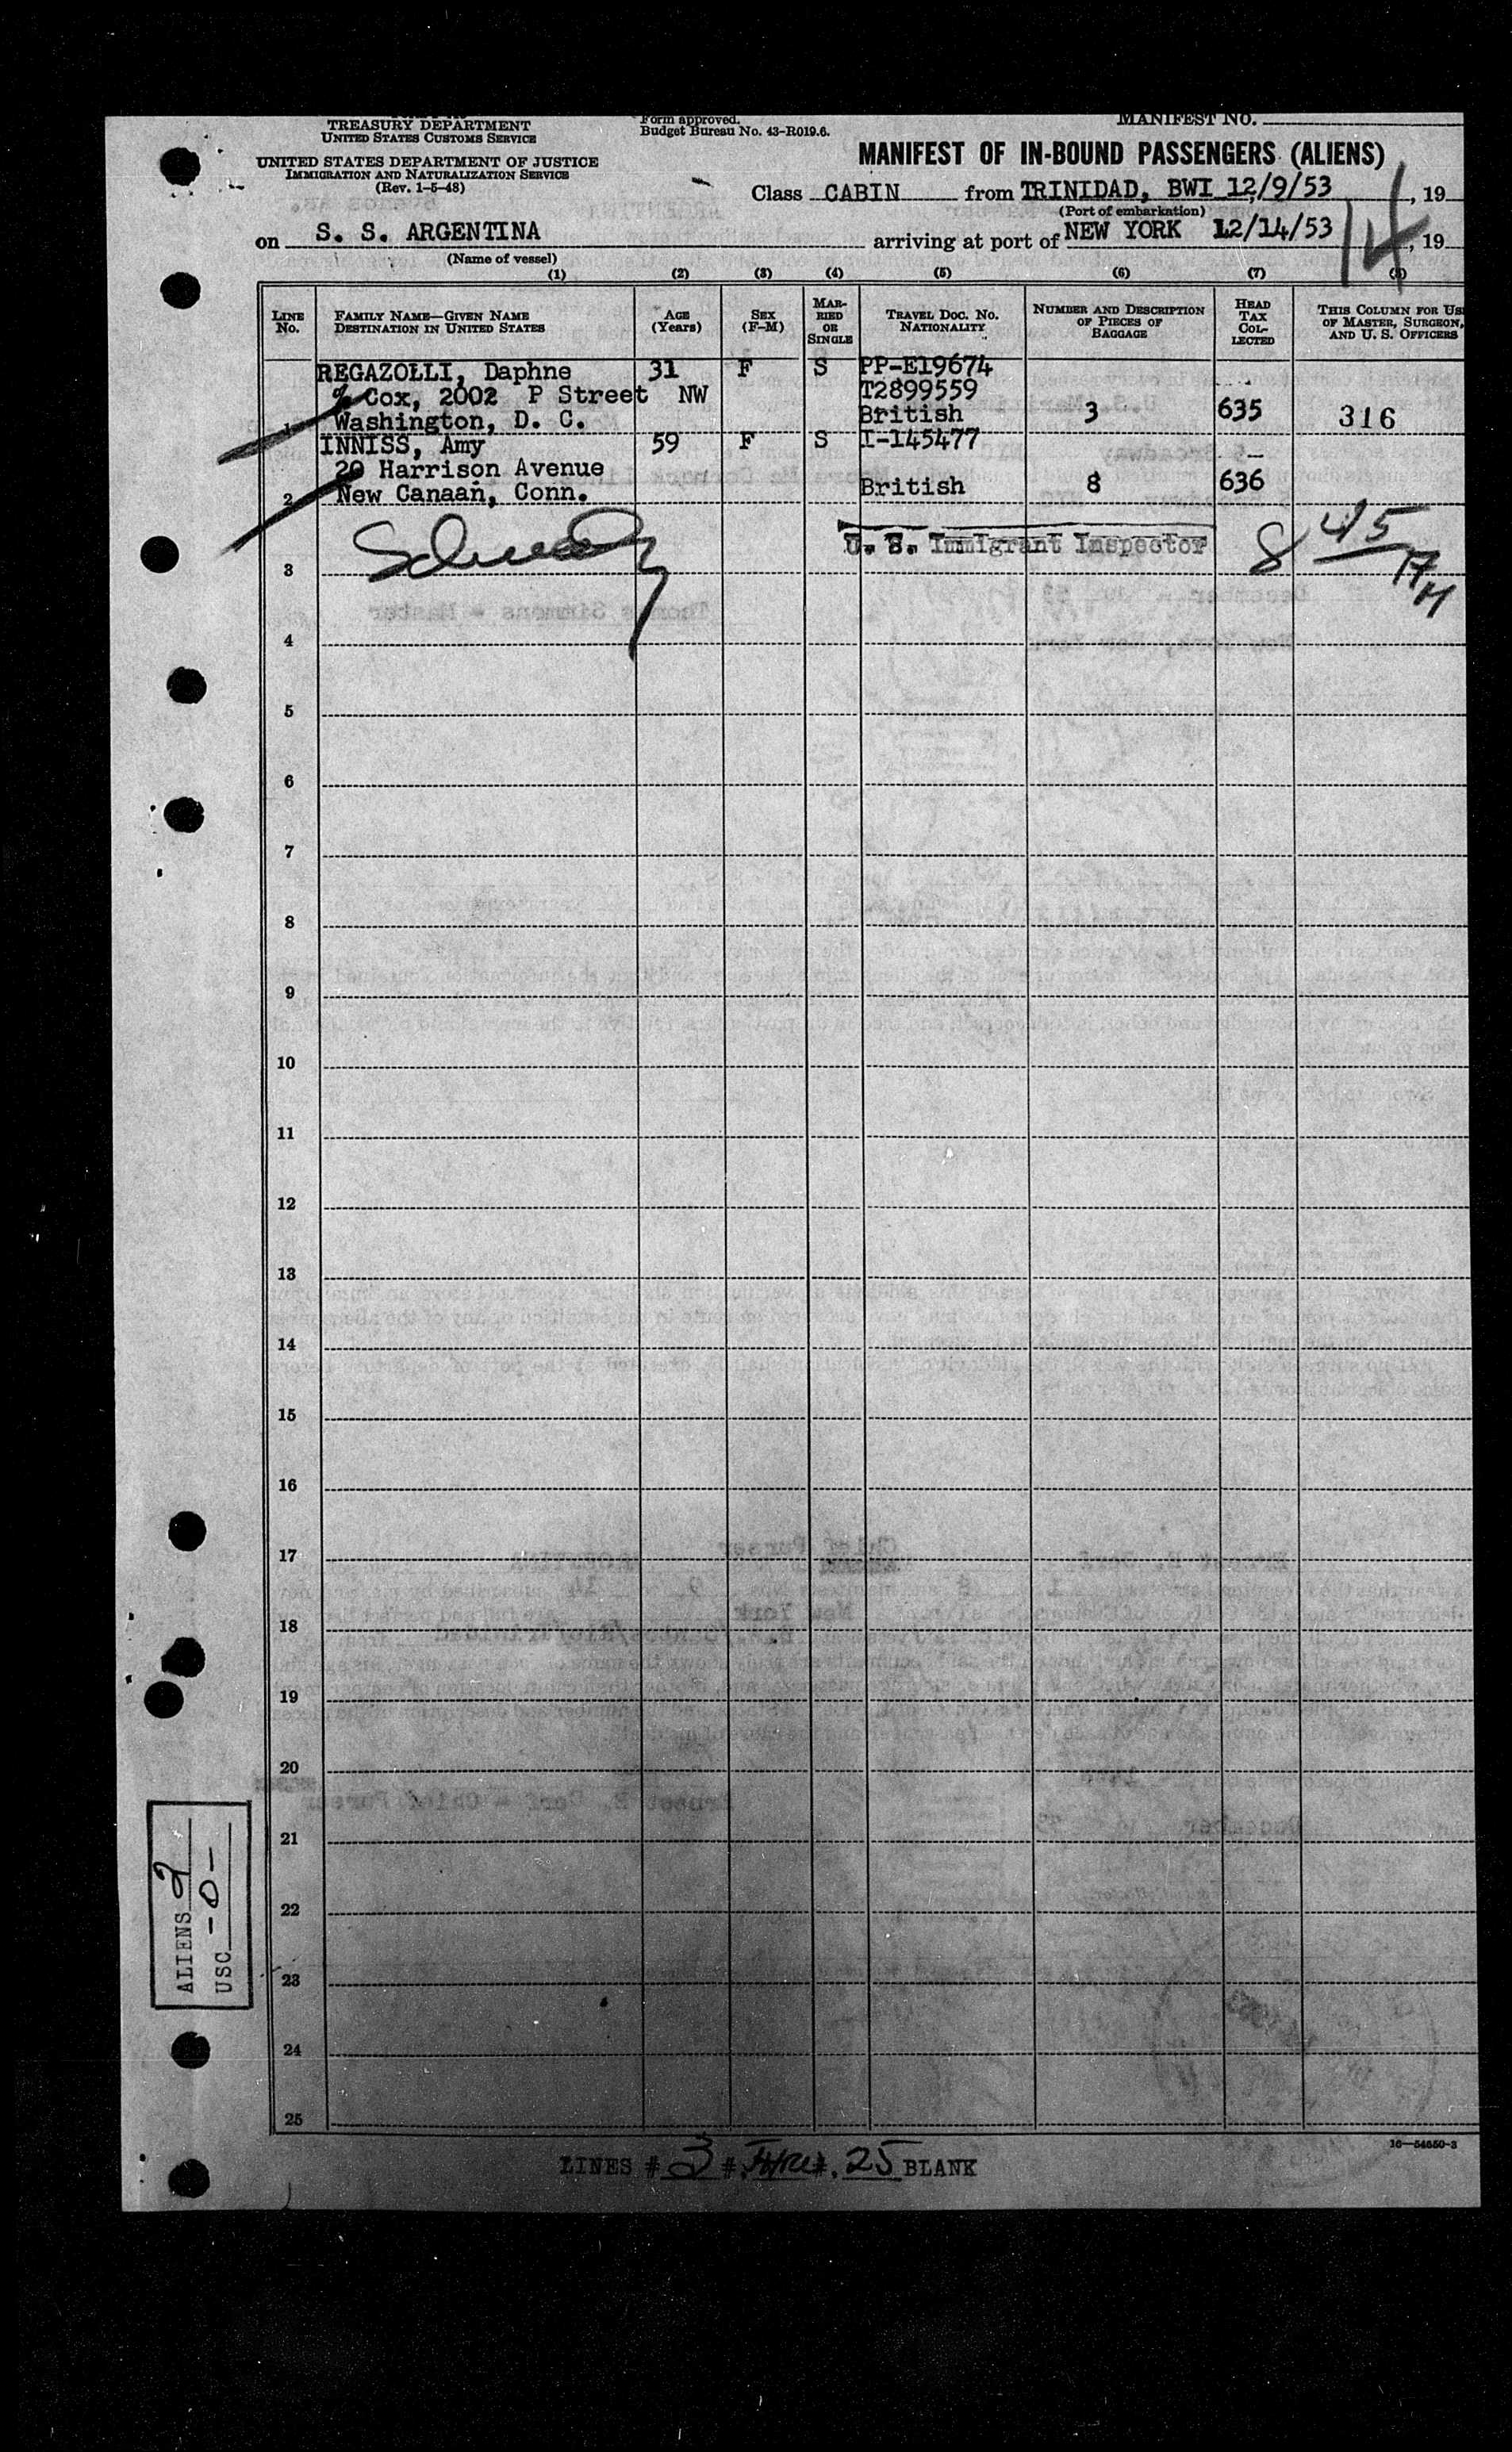 TREASURY DEPARTMENT
UNITED STATES CUSTOMS SERVICE
UNITED STATES DEPARTMENT OF JUSTICE
IMMIGRATION AND NATURALIZATION SERVICE
(Rev. 1-5-48)
Form approved.
Budget Bureau No. 43-R019.6.
MANIFEST NO.
MANIFEST OF IN-BOUND PASSENGERS (ALIENS)
Class CABIN from TRINIDAD, BWI 12/9/53, 19
(Port of embarkation)
on S. S. ARGENTINA arriving at port of NEW YORK 12/14/53, 19
(Name of vessel)
14
(1) (2) (3) (4) (5) (6) (7) (8)
LINE No.
FAMILY NAME—GIVEN NAME
DESTINATION IN UNITED STATES
AGE (Years)
SEX (F-M)
MARRIED OR SINGLE
TRAVEL DOC. NO.
NATIONALITY
NUMBER AND DESCRIPTION OF PIECES OF BAGGAGE
HEAD TAX COLLECTED
THIS COLUMN FOR US
OF MASTER, SURGEON,
AND U. S. OFFICERS
REGAZOLLI, Daphne 31 F S PP-E19674
% Cox, 2002 P Street NW T2899559
1 Washington, D. C. British 3 635 316
INNISS, Amy 59 F S I-145477
20 Harrison Avenue
2 New Canaan, Conn. British 8 636
U. S. Immigrant Inspector
8 45
3
4
5
6
7
8
9
10
11
12
13
14
15
16
17
18
19
20
21
22
23
24
25
ALIENS 2
USC -0-
16—54550-3
LINES # 3 # THRU #. 25 BLANK